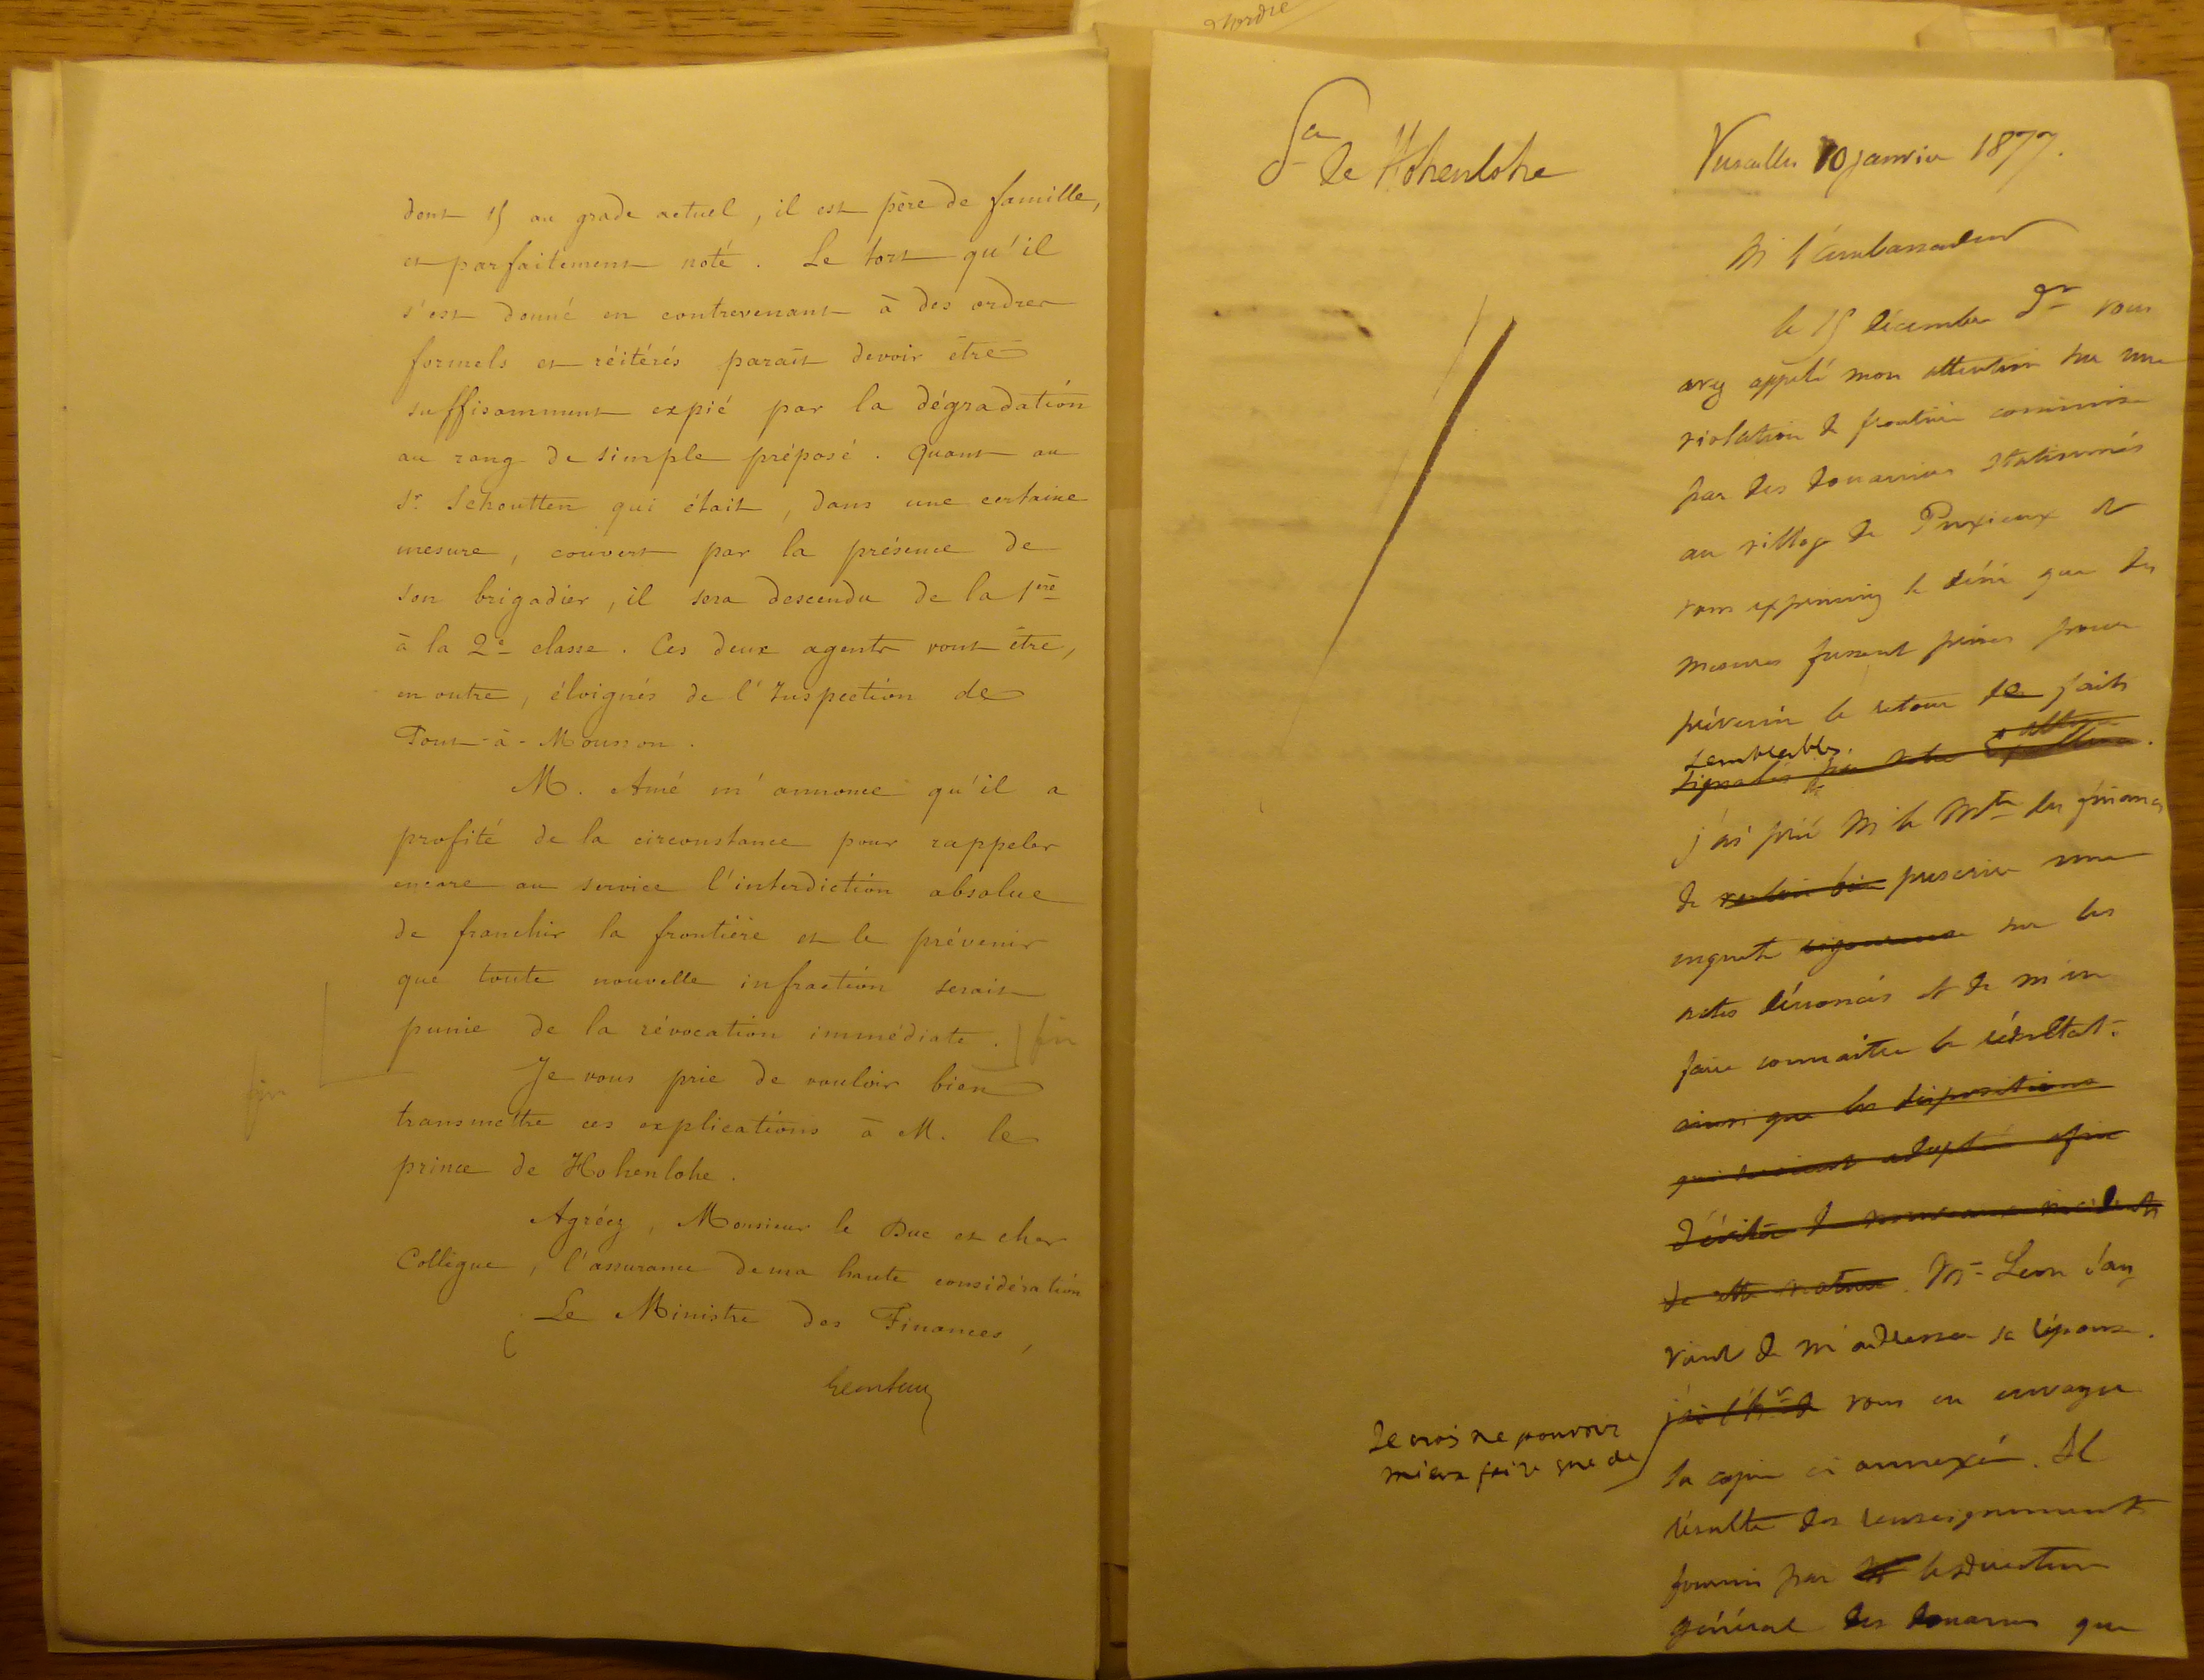 dont 15 au grade actuel, il est père de famille,
et parfaitement noté. Le tort qu'il
s'est donné en contrevenant à des ordres
formels et réitérés parait devoir être
suffisamment expié par la dégradation
au rang de simple préposé. Quant au
Sr. Schoutten qui était, dans une certaine
mesure, couvert par la présence de
son brigadier, il sera descendu de la 1ère
à la 2e classe. Ces deux agents vont être,
en outre, éloignés de l'Inspection de
Pont-à-Mousson.
M. Amé m'annonce qu'il a
profité de la circonstance pour rappeler
encore au service l'interdiction absolue
de franchir la frontière et le prévenir
que toute nouvelle infraction serait
punie de la révocation immédiate. fin
fin
Je vous prie de vouloir bien
transmettre ces explications à M. le
prince de Hohenlohe.
Agréez, Monsieur le Duc et cher
Collègue, l'assurance de ma haute considération
Le Ministre des Finances,
Leon Say
de Hohenlohe
Versailles 10 janvier 1877.
M l'ambassadeur
le 15 décembre dr vous
avez appelé mon attention sur une
violation de frontière commise
par des douaniers stationnés
au village de Puxieux et
vous exprimiez le désir que des
mesures fussent prises pour
prévenir le retour de faits
semblables.
signalés par votre
j'ai prié M le Mtre des finances
de vouloir bien prescrire une
enquête rigoureuse sur les
actes dénoncés et de m'en
faire connaître le résultat.
ainsi que les dispositions
qui seraient adoptées afin
d'éviter de nouveaux incidents
de cette nature. Mr Leon Say
vient de m'adresser sa réponse.
j'ai l'hr de vous en envoyer
Je crois ne pouvoir
mieux faire que de
la copie ci annexée. Il
résulte des renseignements
fournis par le directeur
général des douanes que